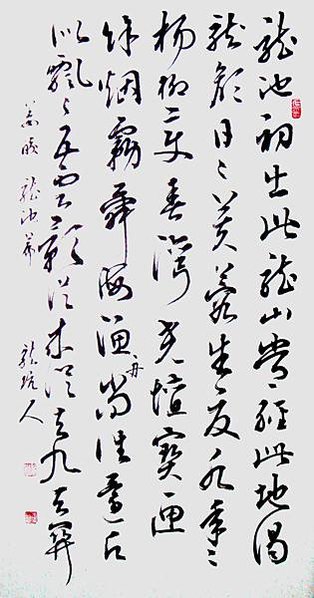 龍池初出此龍山常經此地謁
龍顏日〻芙蓉生夏水年〻
楊柳變春灣堯壇寶匣
餘烟霧舜海漁舟尚往還願
似飄〻五雲影從來從去九天關
姜皎 龍池篇 龍坑人